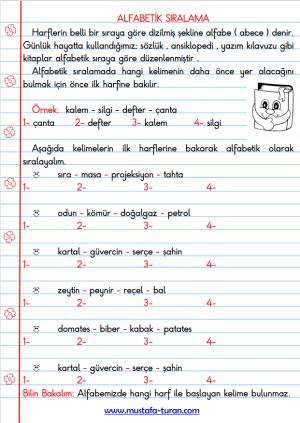 ALFABETİK SIRALAMA
Harflerin belli bir sıraya göre dizilmiş şekline alfabe ( abece ) denir.
Günlük hayatta kullandığımız; sözlük , ansiklopedi , yazım kılavuzu gibi
kitaplar alfabetik sıraya göre düzenlenmiştir .
Alfabetik sıralamada hangi kelimenin daha önce yer alacağını
bulmak için önce ilk harfine bakılır.
Örnek: kalem - silgi - defter - çanta
1- çanta 2- defter 3- kalem 4- silgi
Aşağıda kelimelerin ilk harflerine bakarak alfabetik olarak
sıralayalım.
sıra - masa - projeksiyon - tahta
1- 2- 3- 4-
odun - kömür - doğalgaz - petrol
1- 2- 3- 4-
kartal - güvercin - serçe - şahin
1- 2- 3- 4-
zeytin - peynir - reçel - bal
1- 2- 3- 4-
domates - biber - kabak - patates
1- 2- 3- 4-
kartal - güvercin - serçe - şahin
1- 2- 3- 4-
Bilin Bakalım: Alfabemizde hangi harf ile başlayan kelime bulunmaz.
www.mustafa-turan.com